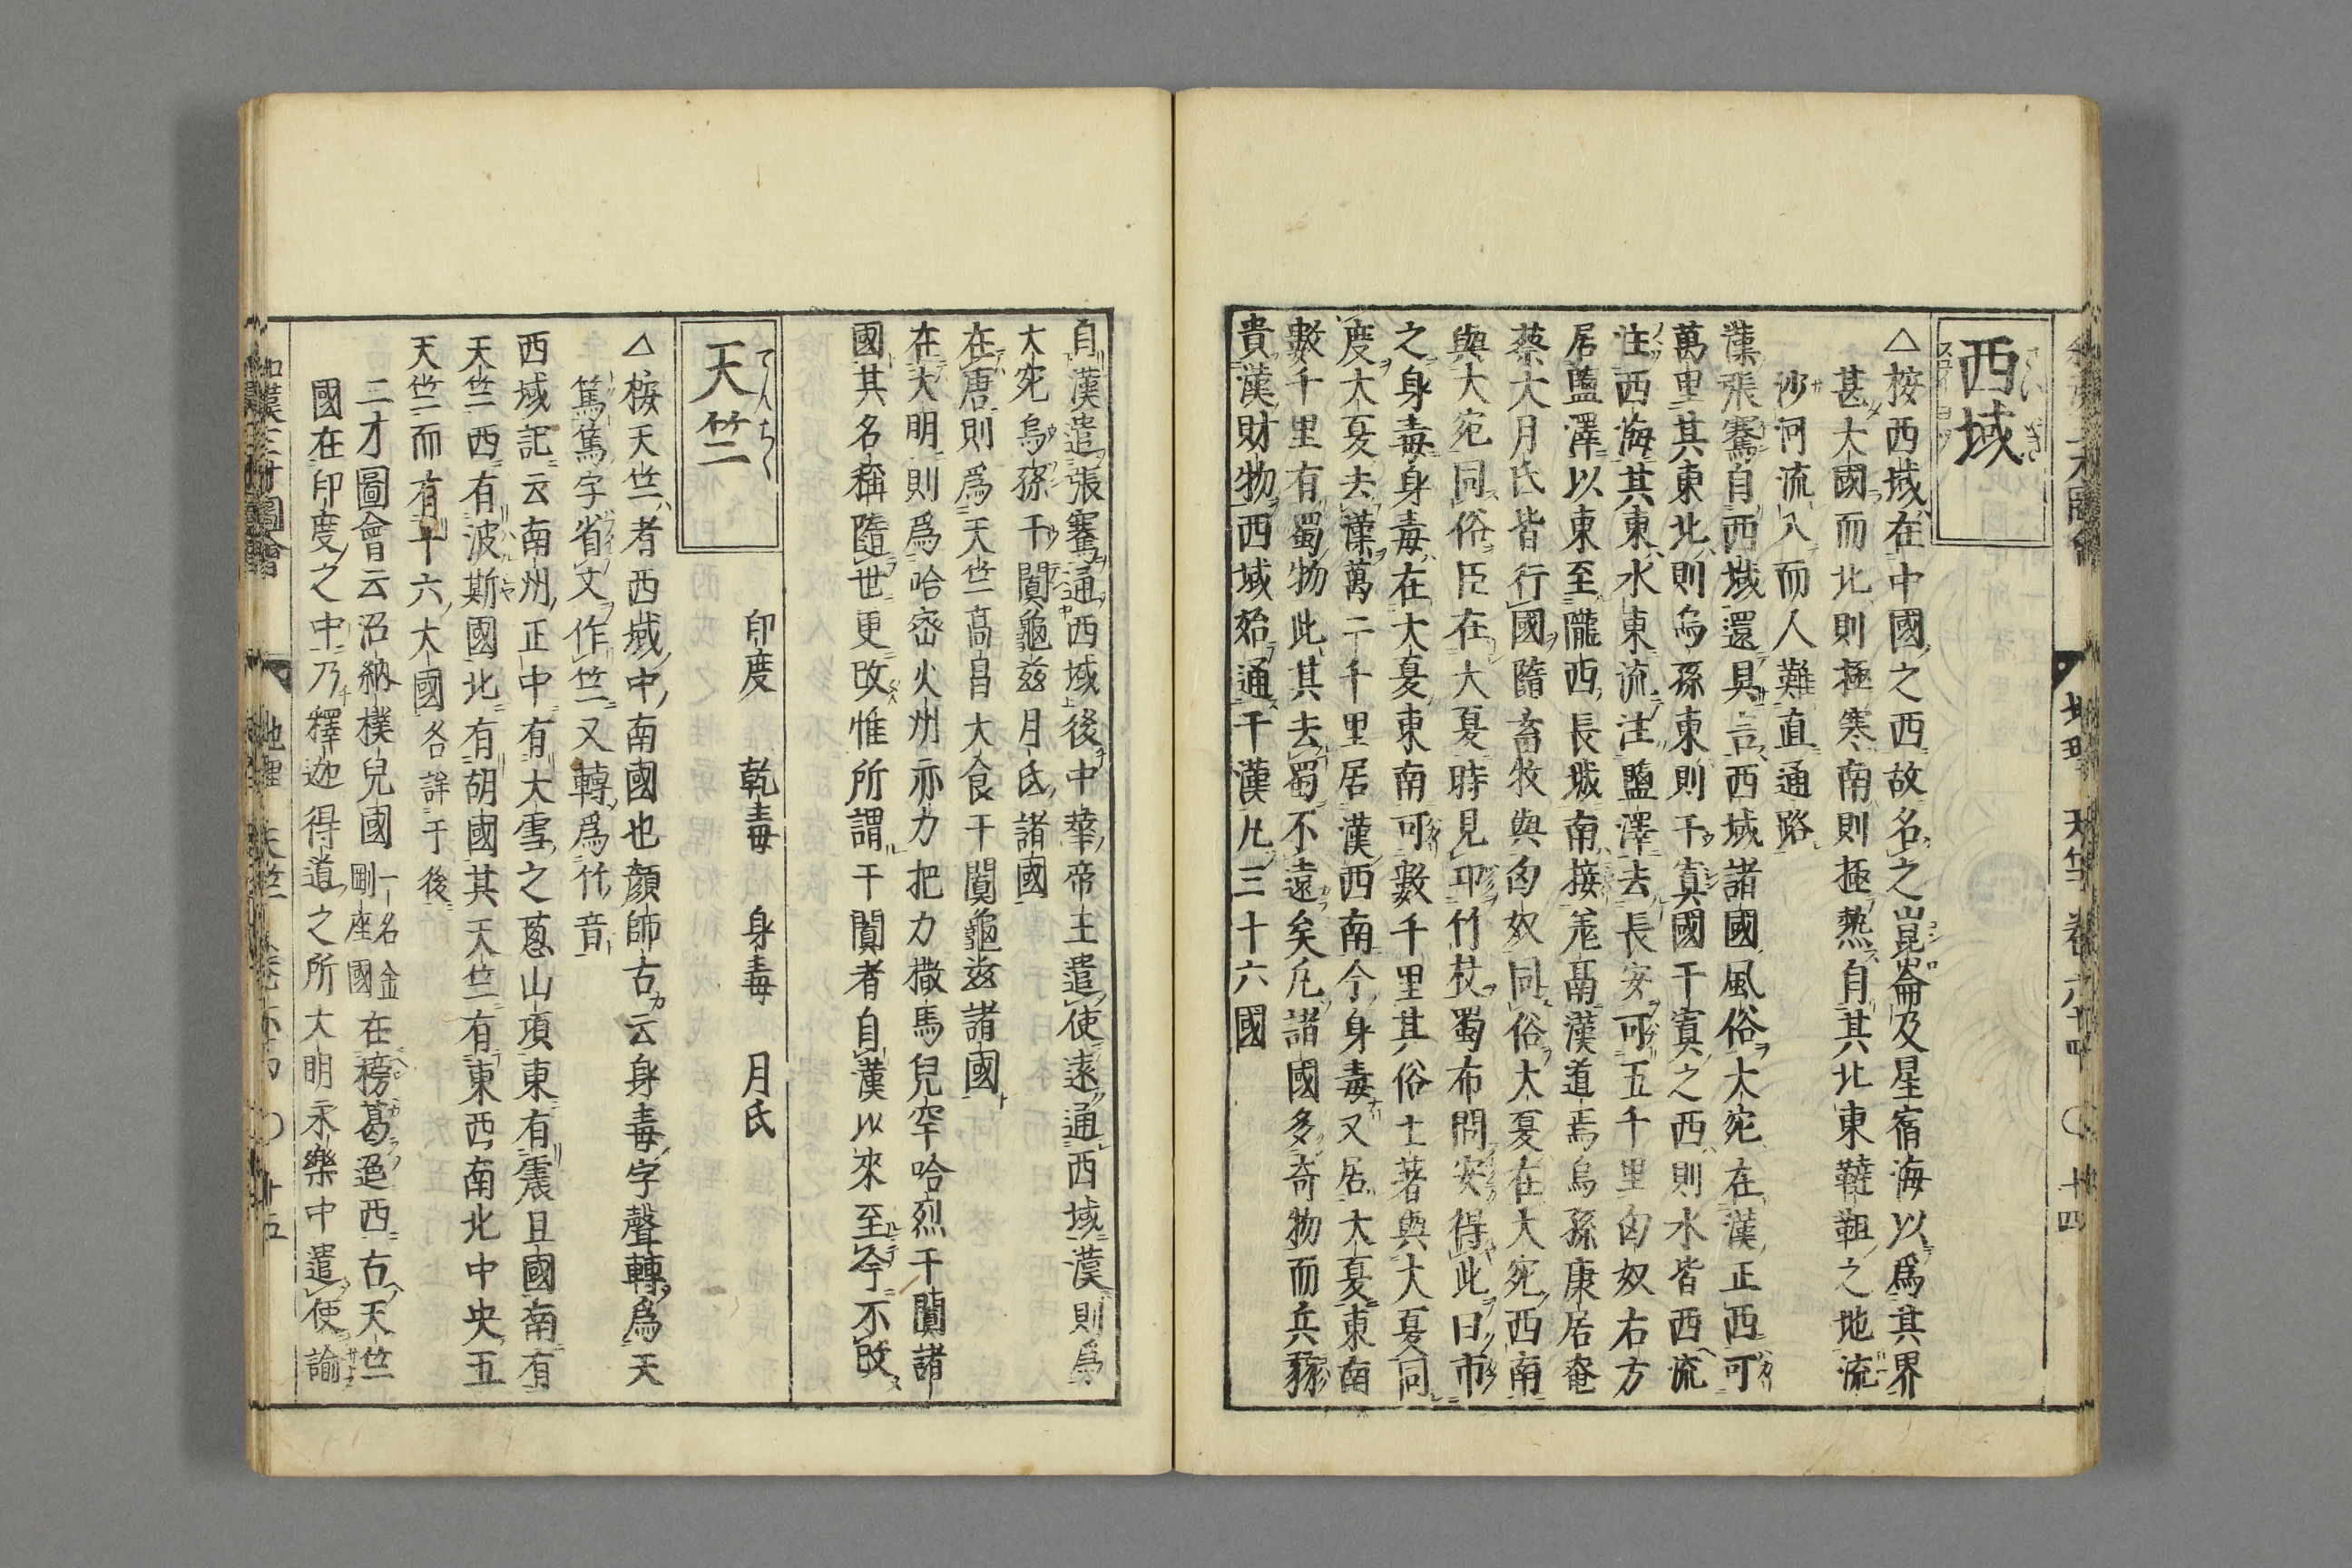 西域
△桉西域在中國之西故名之崑崙及星宿海以爲其界
甚大國而北則極寒南則極熱自其北東韃靼之地流
沙河流入而人難直通路
漢張騫自西域還具言西域諸國風俗大宛在漢正西可
萬里其東北則烏孫東則于寘國于寘之西則水皆西流
注西海其東水東流注鹽澤去長安可五千里匈奴右方
居鹽澤以東至隴西長城南接羌鬲漢道焉烏孫康居奄
蔡大月氏皆行國隨畜牧與匈奴同俗大夏在大宛西南
與大宛同俗臣在大夏時見邛竹杖蜀布問安得此曰市
之身毒身毒在大夏東南可數千里其俗土著與大夏同
度大夏去漢萬二千里居漢西南今身毒又居大夏東南
數千里有蜀物此其去蜀不遠矣凢諸國多奇物而兵弱
貴漢財物西域始通于漢凢三十六國
地理 天竺 卷六十四 〇 十四
自漢遣張騫通西域後中華帝王遣使遠通西域漢則爲
大宛烏孫于闐龜兹月氏諸國
在唐則爲天竺高昌大食于闐龜兹諸國
在大明則爲哈密火州亦力把力撒馬兒罕哈烈于闐諸
國其名稱隨世更改惟所謂于闐者自漢以來至今不改
天竺
印度 乾毒 身毒 月氏
△桉天竺者西域中南國也顔師古云身毒字聲轉爲天
篤篤字省文作竺又轉爲竹音
西域記云南州正中有大雪之葱山項東有震旦國南有
天竺西有波斯國北有胡國其天竺有東西南北中央五
天竺而有十六大國各詳于後
三才圖會云沼納樸兒國一名金剛座國在榜葛迯西古天竺
國在印度之中乃釋迦得道之所大明永樂中遣使諭
和漢三才圖會 地理 天竺 卷六十四 〇 十五